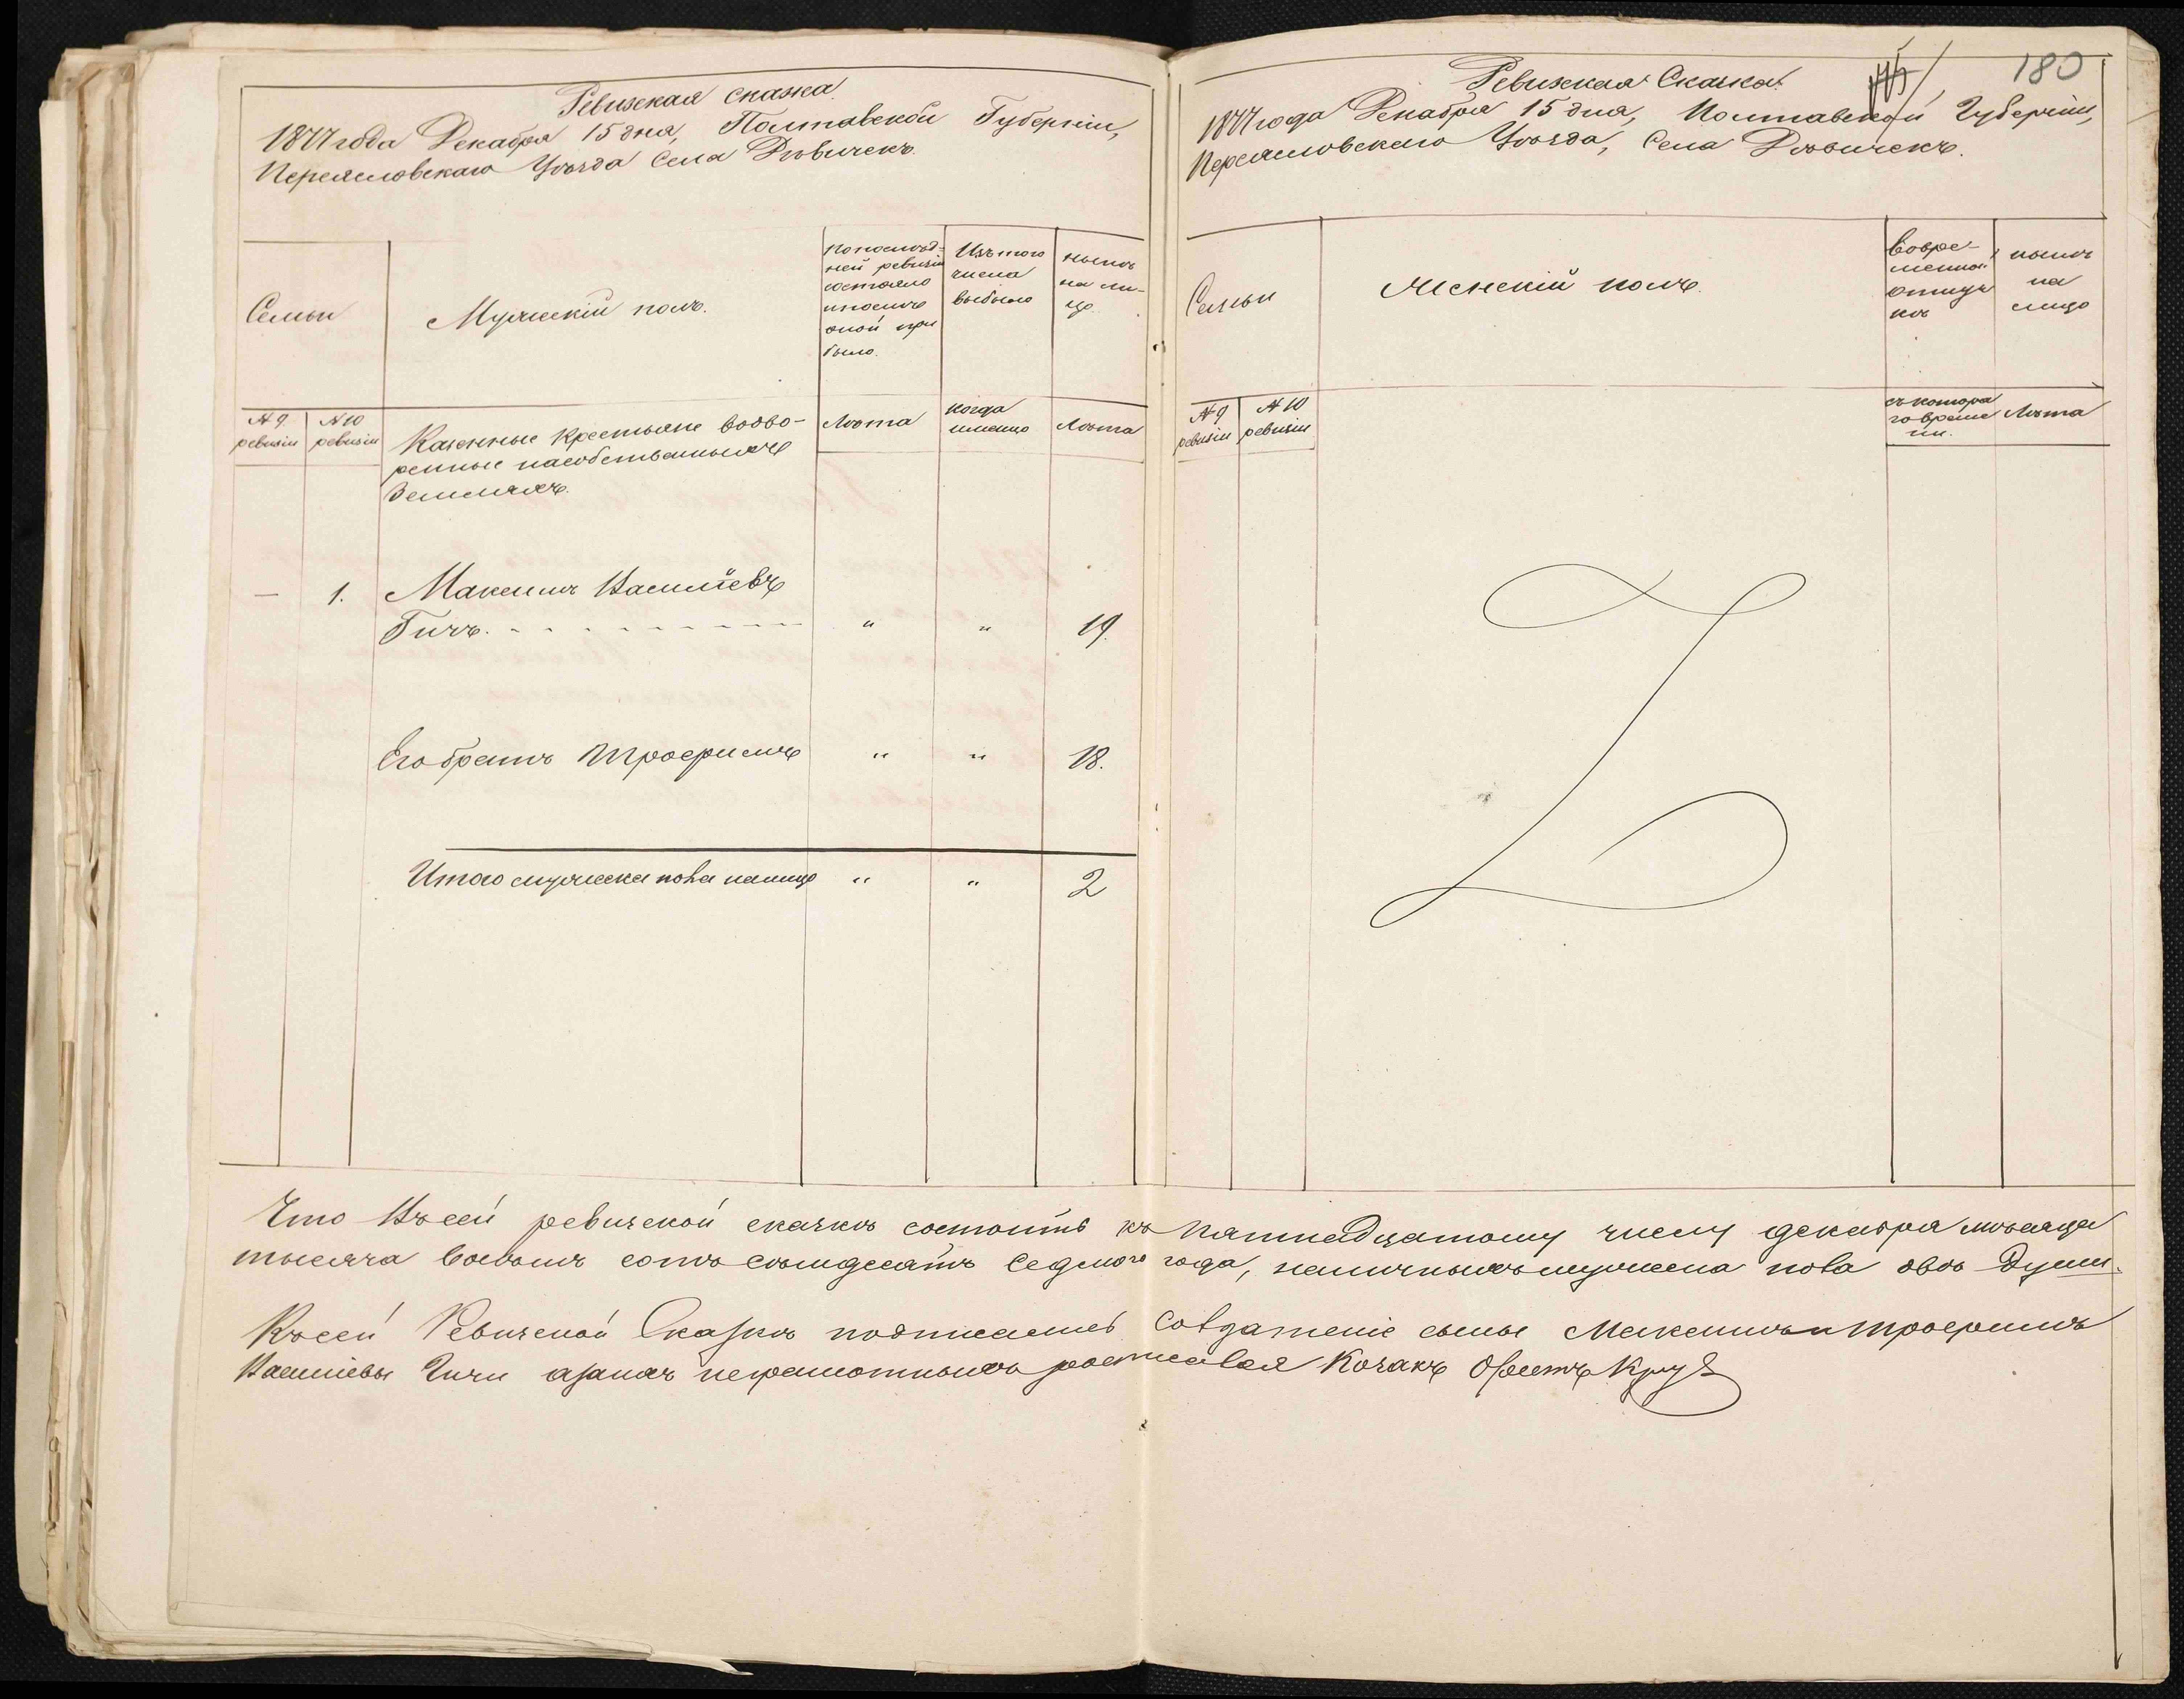 Ревизская сказка.
1877 года Декабря 15 дня, Полтавской Губерніи,
Переясловскаго Уѣзда Села Дѣвичекъ.
Семьи
Мужескій полъ.
По послѣд-
ней ревизіи
состояло
и послѣ
оной при
было.
Изъ того
числа
выбыло
нынѣ
на ли-
цо.
№ 9
ревизіи
№ 10
ревизіи
Казенные крестьяне водво-
ренные на собственныхъ
Земляхъ.
Лѣта
когда
именно
Лѣта
— 1. Максимъ Васильевъ
Гичъ. " " 19.
Его братъ Трофимъ " " 18.
Итого мужеска пола налицо " " 2
180
Ревизская Сказка.
1877 года Декабря 15 дня, Полтавской Губерніи,
Переясловскаго Уѣзда, Села Дѣвичекъ.
Семьи
Женскій полъ.
Во вре-
менной
отлуч
кѣ
нынѣ
на
лицо
№ 9
ревизіи
№ 10
ревизіи
съ котора
го време
ни.
Лѣта
Что въ сей ревизской сказкѣ состоитъ къ пятнадцатому числу декабря мѣсяца
тысяча восемь сотъ семьдесятъ седмого года, наличныхъ мужеска пола двѣ души.
Къ сей Ревизской Сказкѣ подписались сыны Максимъ и Трофимъ
Васильевы Гичи а за нихъ неграмотныхъ росписался Козакъ